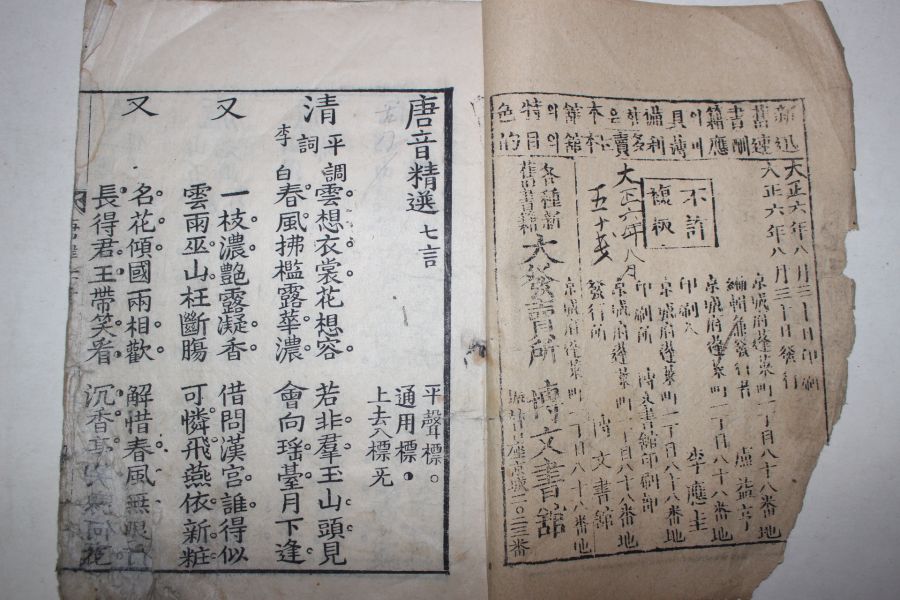 新迅
舊速
書酬
籍應
具薄
備利
多
은賣
本社
舘舘
特目
色的
大正六年八月三十日印刷
大正六年八月三十日發行
不許
複板
京城府蓬萊町一丁目八十八番地
編輯兼發行者 盧益亨
京城府蓬萊町一丁目八十八番地
印刷人 李應圭
京城府蓬萊町一丁目八十八番地
印刷所 博文書舘印刷部
大正六年八月
五十戔
京城府蓬萊町一丁目八十八番地
發行所 博文書舘
各種新
舊書籍
大發賣所 博文書舘
唐音精選 七言
平聲標。
通用標
上去入標无
清平調詞 李白
雲想衣裳花想容 若非羣玉山頭見
春風拂檻露華濃 會向瑶臺月下逢
又
一枝濃艷露凝香 借問漢宫誰得似
雲雨巫山枉斷腸 可憐飛燕依新粧
又
名花傾國兩相歡 解惜春風無限
長得君王帶笑看 沉香亭